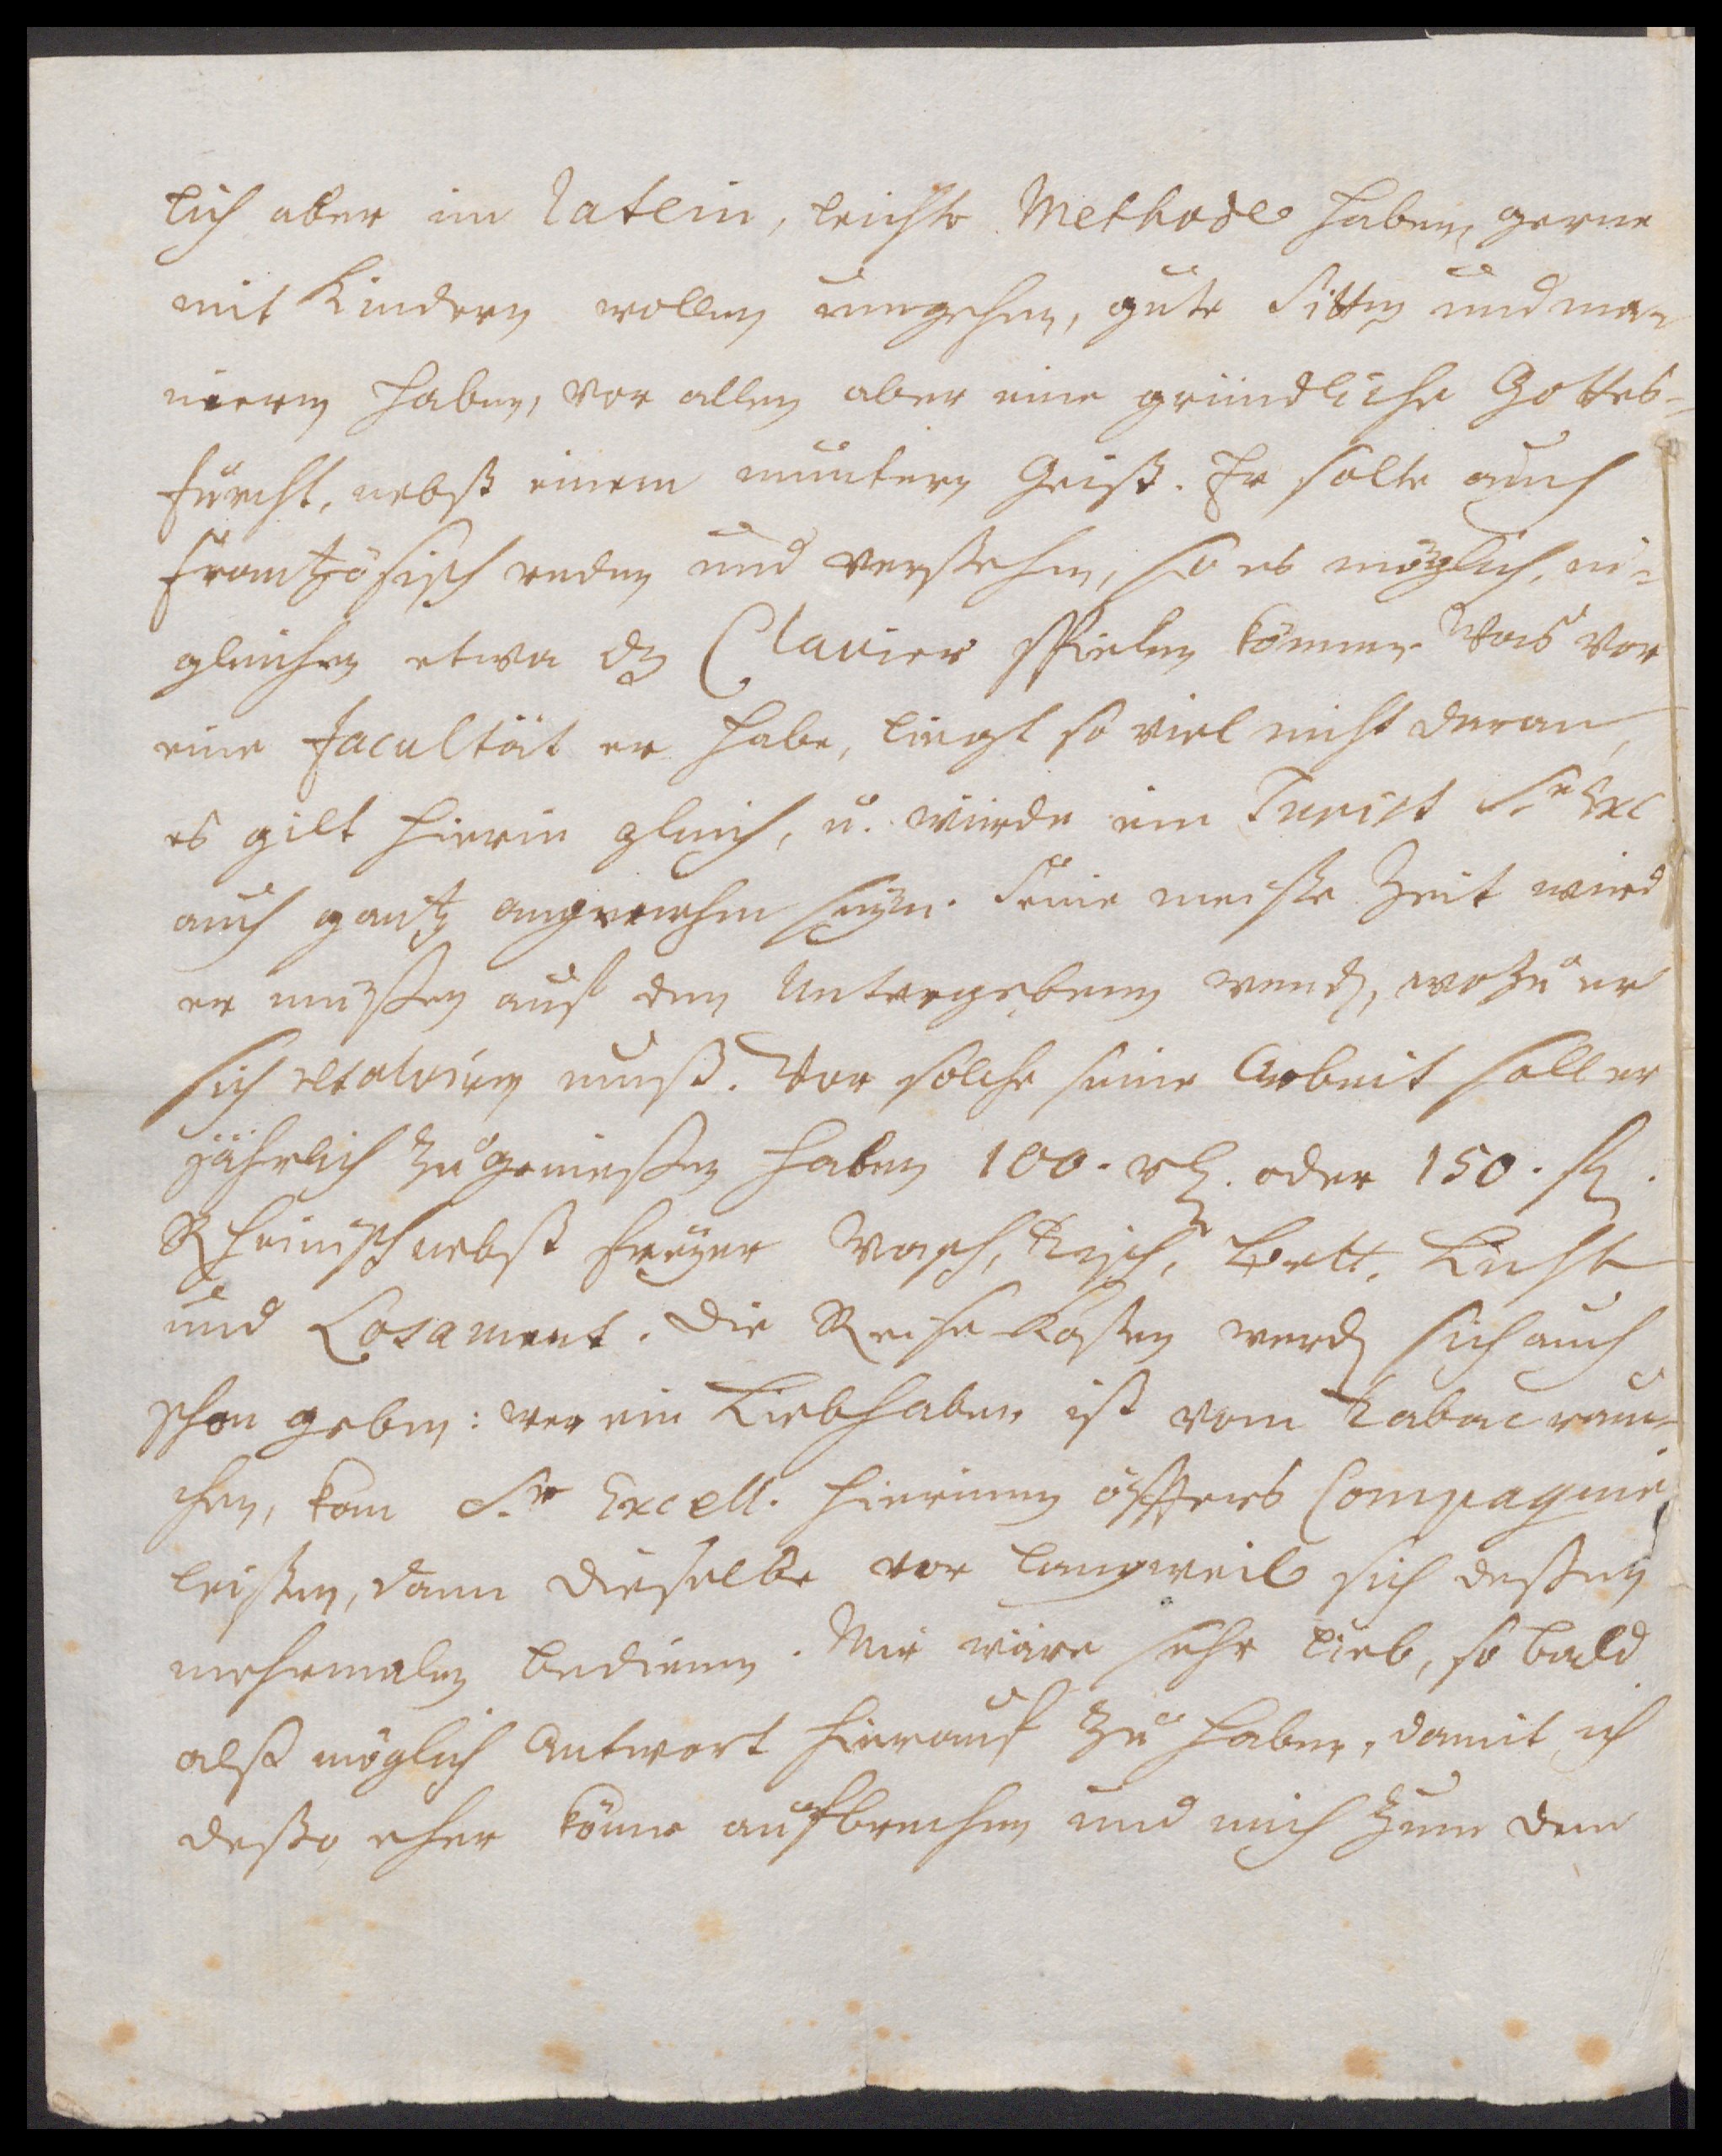 lich aber im Latein, leichte Methode haben, gerne
mit Kindern wollen umgehen, gute Sitten und ma-
nieren haben, vor allen aber eine gründliche Gottes-
furcht, nebst einem muntern Geist. Er solte auch
Frantzösisch reden und verstehen, so es möglich, in-
gleichen etwa dz Clavier spielen können. Was vor
eine Facultät er habe, liegt so viel nicht daran,
es gilt hierin gleich, u. würde ein Jurist Sr Exc
auch gantz angenehm seyn. Seine meiste Zeit wird
er müssen auf den Untergebenen wend, wozu er
sich muß. Vor solche seine Arbeit soll er
jährlich zu geniessen haben 100. rl. oder 150. fl.
Rheinisch nebst freyer Wasch, Tisch, Bett, Licht
und Losament. Die Reise Kosten werd sich auch
schon geben: wer ein Liebhaber ist vom Taback rau-
chen, kan Sr Excell. hierinnen öffters Compagnie
leisten, dann dieselbe vor langweil sich dessen
mehrmalen bedienen. Mir wäre sehr lieb, so bald
alß möglich Antwort hierauf zu haben, damit ich
desto eher könne aufbrechen und mich zum dem